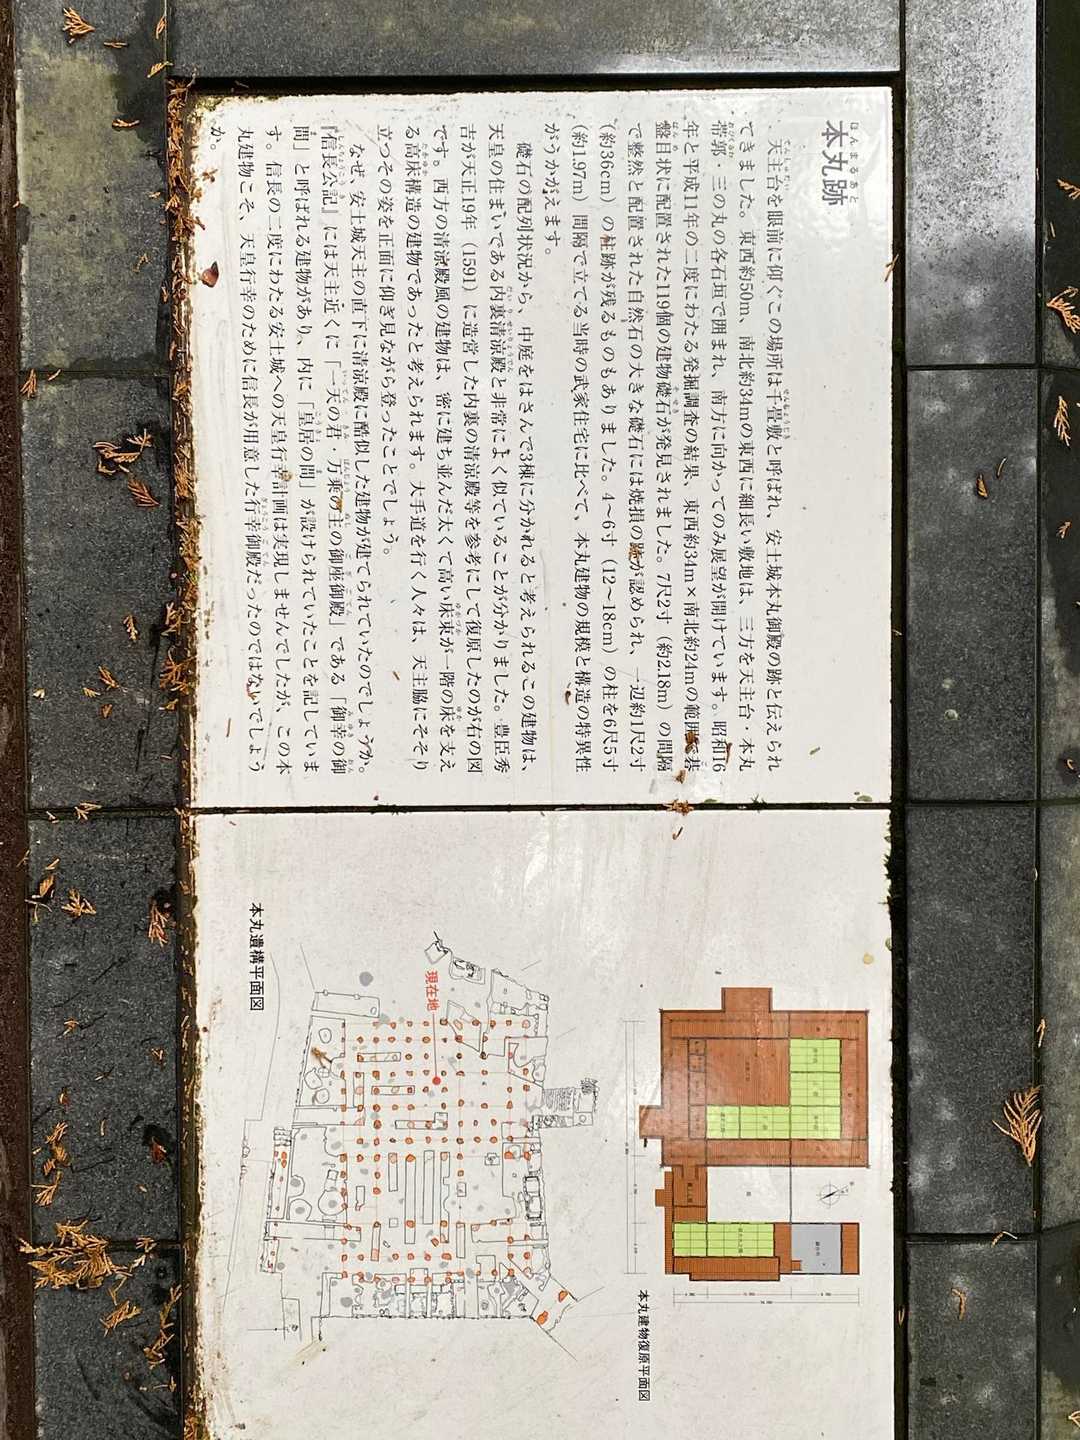 ほんまるあと
本丸跡
天主台を眼前に仰ぐこの場所は千畳敷と呼ばれ、安土城本丸御殿の跡と伝えられ
てきました。東西約50m、南北約34mの東西に細長い敷地は、三方を天主台・本丸
帯郭・三の丸の各石垣で囲まれ、南方に向かってのみ展望が開けています。昭和16
年と平成11年の二度にわたる発掘調査の結果、東西約34m×南北約24mの範囲で碁
盤目状に配置された119個の建物礎石が発見されました。7尺2寸（約2.18m）の間隔
で整然と配置された自然石の大きな礎石には焼損の跡が認められ、一辺約1尺2寸
（約36cm）の柱跡が残るものもありました。4～6寸（12～18cm）の柱を6尺5寸
（約1.97m）間隔で立てる当時の武家住宅に比べて、本丸建物の規模と構造の特異性
がうかがえます。
礎石の配列状況から、中庭をはさんで3棟に分かれると考えられるこの建物は、
天皇の住まいである内裏清涼殿と非常によく似ていることが分かりました。豊臣秀
吉が天正19年（1591）に造営した内裏の清涼殿等を参考にして復原したのが右の図
です。西方の清涼殿風の建物は、密に建ち並んだ太くて高い床束が一階の床を支え
る高床構造の建物であったと考えられます。大手道を行く人々は、天主脇にそそり
立つその姿を正面に仰ぎ見ながら登ったことでしょう。
なぜ、安土城天主の直下に清涼殿に酷似した建物が建てられていたのでしょうか。
『信長公記』には天主近くに「一天の君・万乗の主の御座御殿」である「御幸の御
間」と呼ばれる建物があり、内に「皇居の間」が設けられていたことを記していま
す。信長の二度にわたる安土城への天皇行幸計画は実現しませんでしたが、この本
丸建物こそ、天皇行幸のために信長が用意した行幸御殿だったのではないでしょう
か。
本丸建物復原平面図
現在地
本丸遺構平面図